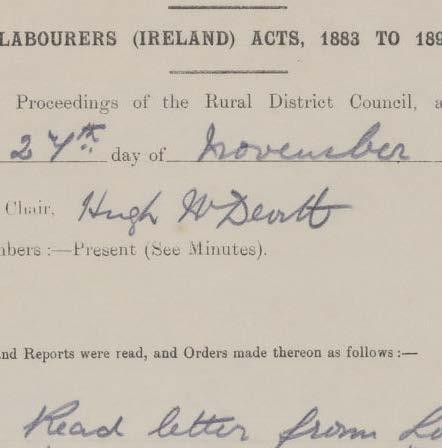 LABOURERS (IRELAND) ACTS, 1883 TO 189
Proceedings of the Rural District Council, a
27th day of November
Chair, Hugh McDevitt
mbers :—Present (See Minutes).
nd Reports were read, and Orders made thereon as follows :—
Read letter from Lo